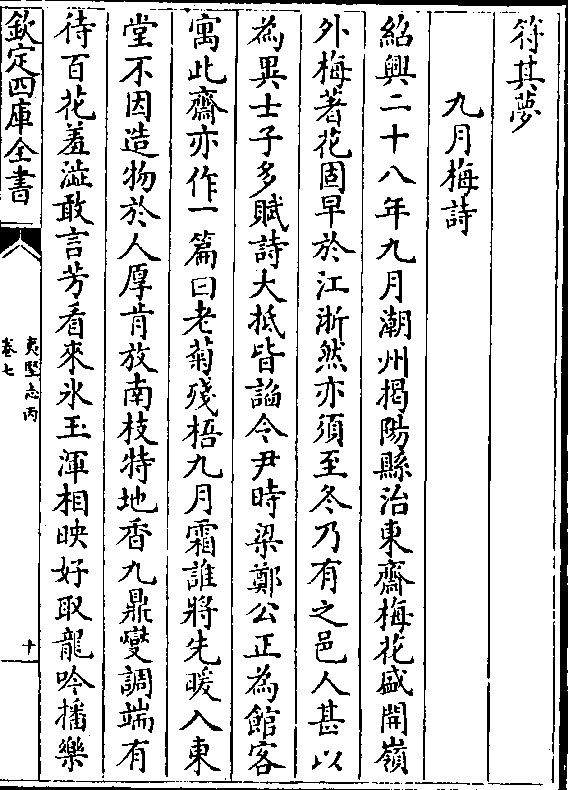 符其夢
九月梅詩
紹興二十八年九月潮州揭陽縣治東齋梅花盛開嶺
外梅著花固早於江浙然亦須至冬乃有之邑人甚以
為異士子多賦詩大抵皆諂令尹時梁鄭公正為館客
寓此齋亦作一篇曰老菊殘梧九月霜誰將先暖入東
堂不因造物於人厚肯放南枝特地香九鼎變調端有
待百花羞澁敢言芳看來氷玉渾相映好取龍吟播樂
欽定四庫全書
夷堅志丙
卷七
十